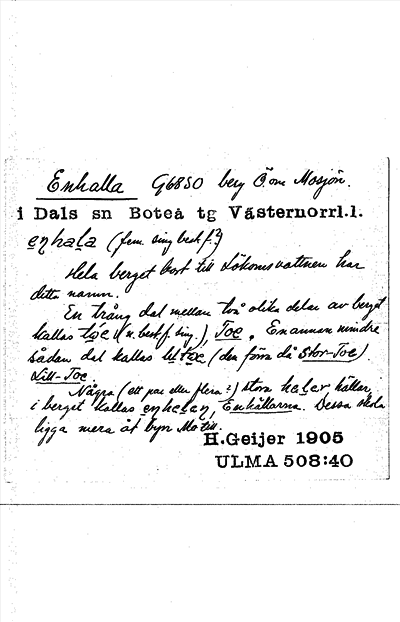 Enhalla G6850 berg Ö. om Mosjön.
i Dals sn Boteå tg Västernorrl.l.
(fem. sing. best. f.?)
Hela berget bort till Lökomsvattnen har
detta namn.
En trång dal mellan två olika delar av berget
kallas (n. best. f. sing.), Toe. En annan mindre
sådan dal kallas (den förra då Stor-Toe).
Lill-Toe.
Några (ett par eller flera?) stora hällar
i berget kallas Enhällarna. Dessa skola
ligga mera åt byn Mo till.
H.Geijer 1905
ULMA 508:40